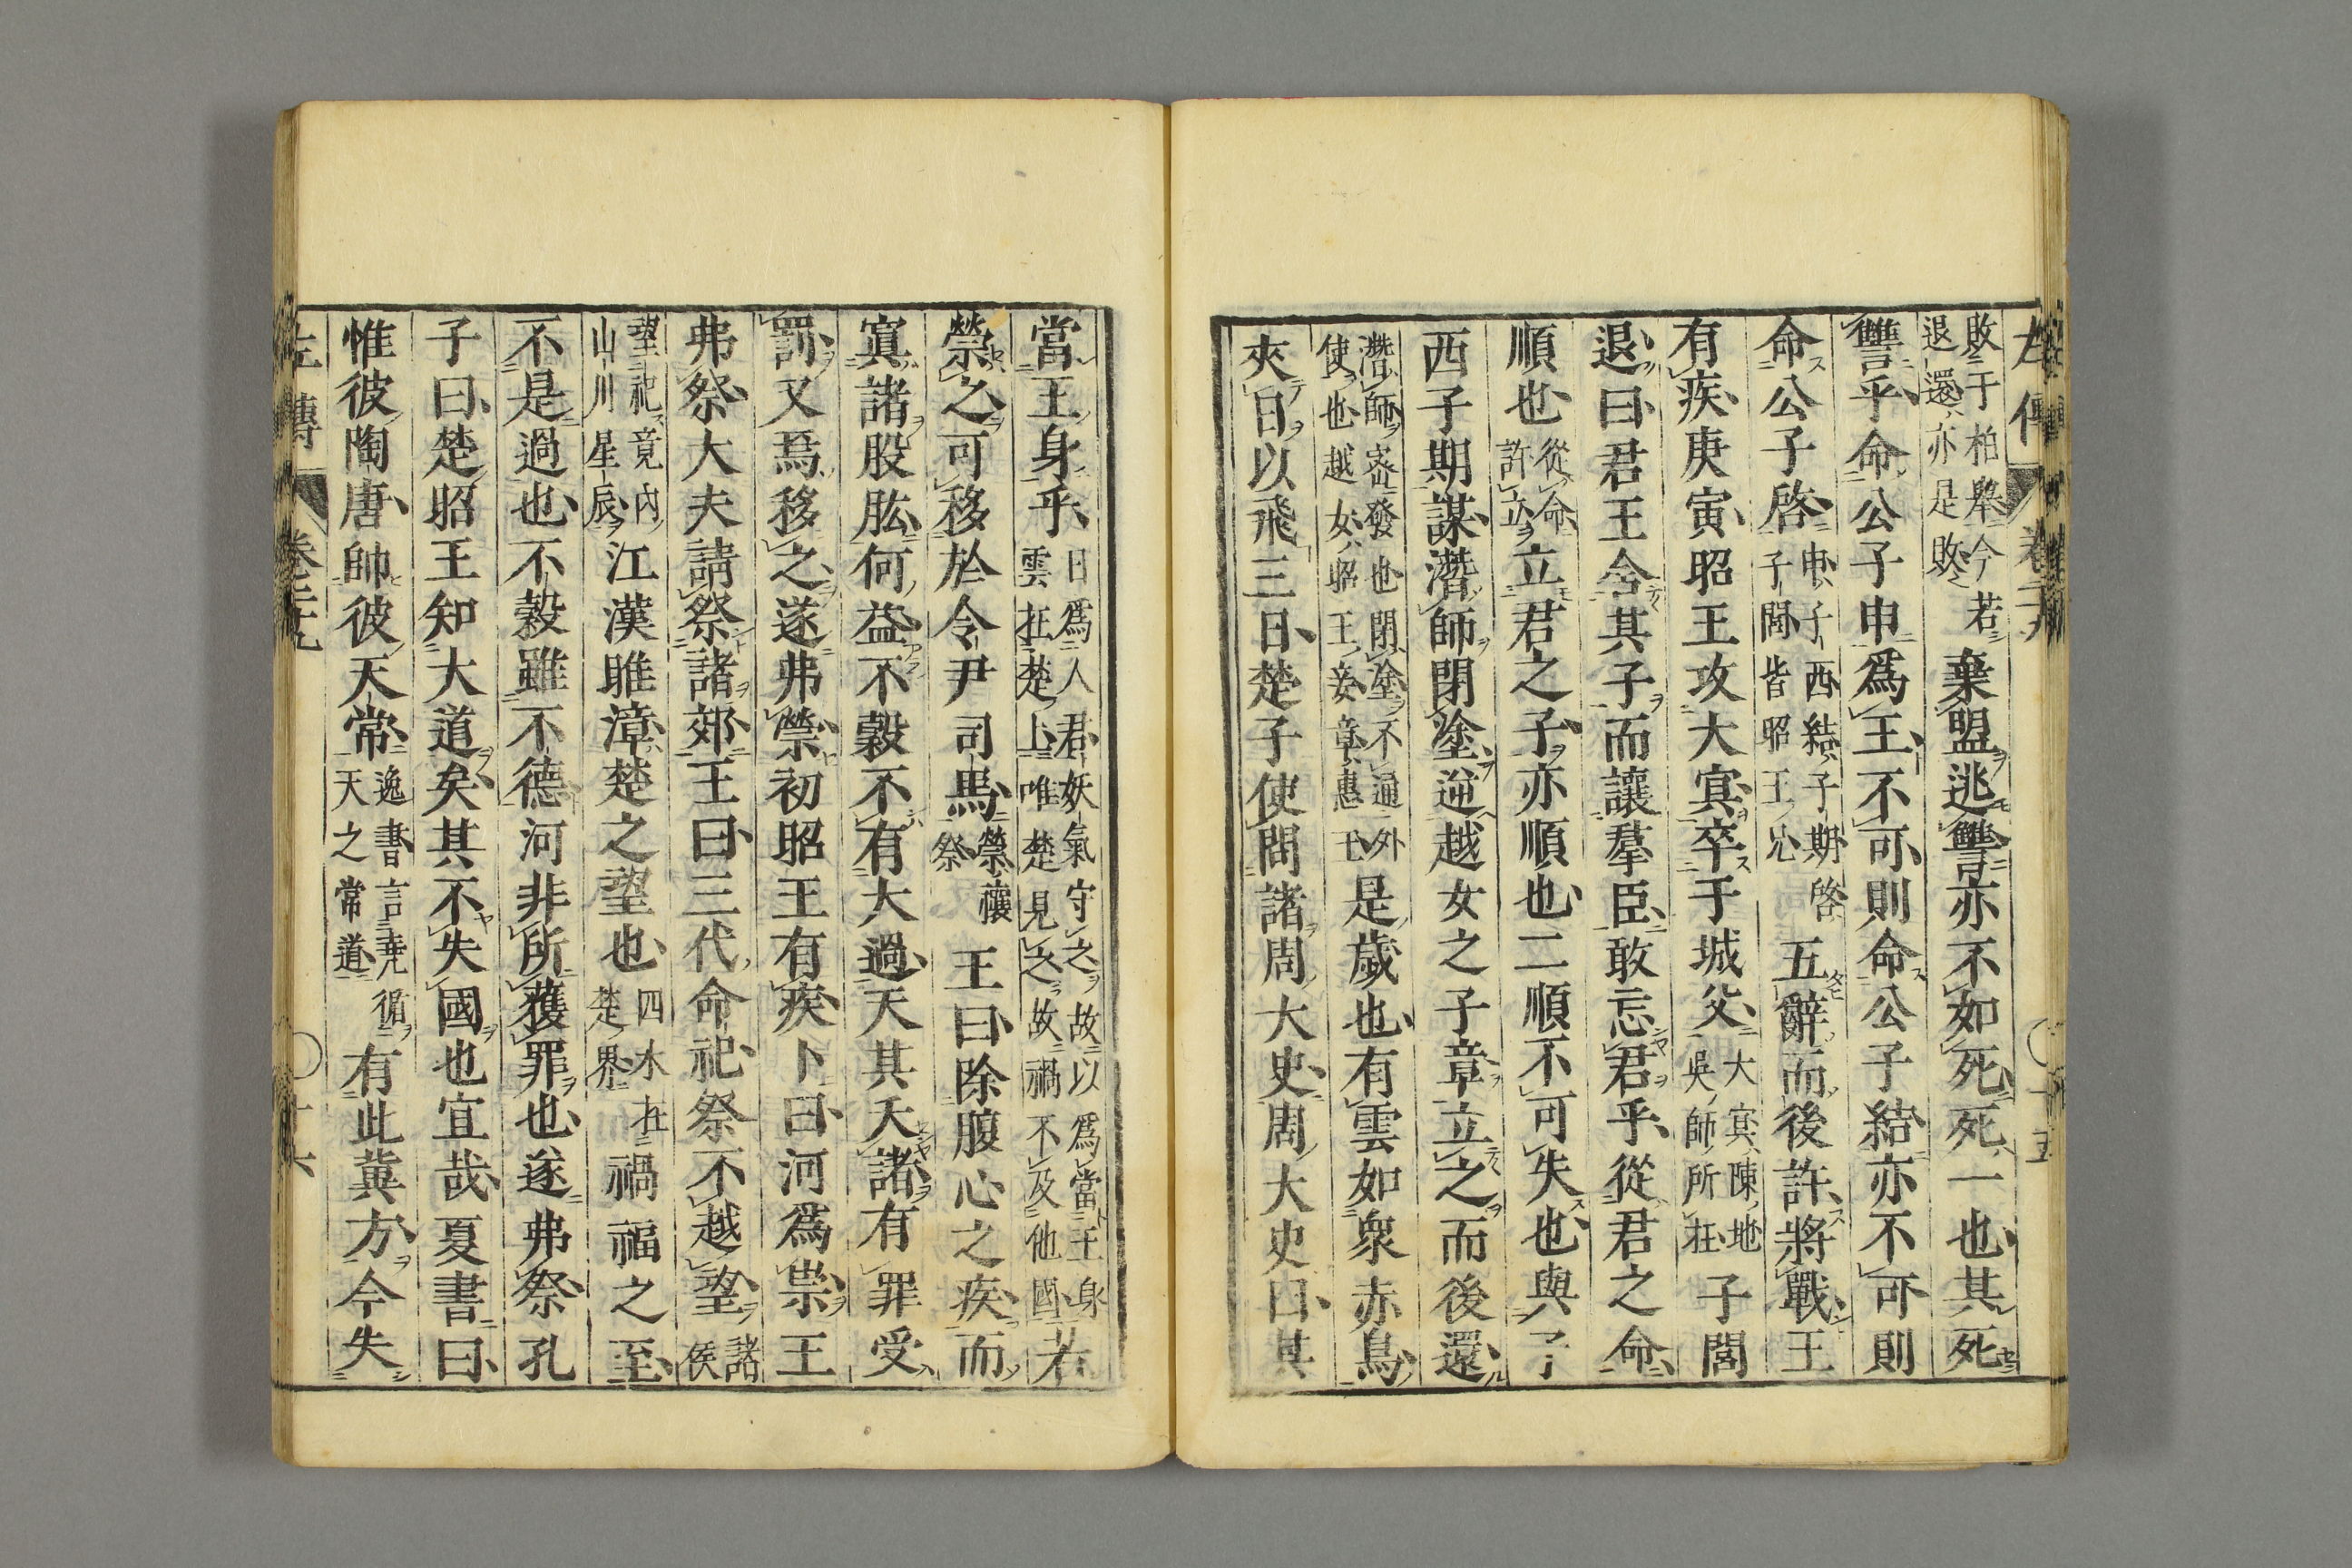 敗于柏舉今若退還亦是敗棄盟逃讐亦不如死死一也其死
讐乎命公子申爲王不可則命公子結亦不可則
命公子啓申子西結子期啓子閭皆昭王兄五辭而後許將戰王
有疾庚寅昭王攻大冥卒于城父大冥陳地吳師所在子閭
退曰君王舍其子而讓羣臣敢忘君乎從君之命
順也從命許立立君之子亦順也二順不可失也與子
西子期謀潛師閉塗逆越女之子章立之而後還
潛師密發也閉塗不通外使也越女昭王妾章惠王是歲也有雲如衆赤鳥
夾日以飛三日楚子使問諸周大史周大史曰其
當王身乎日爲人君妖氣守之故以爲當王身雲在楚上唯楚見之故禍不及他國若
禜之可移於令尹司馬禜禳祭王曰除腹心之疾而
寘諸股肱何益不穀不有大過天其夭諸有罪受
罰又焉移之遂弗禜初昭王有疾卜曰河爲祟王
弗祭大夫請祭諸郊王曰三代命祀祭不越望諸侯
望祀竟內山川星辰江漢睢漳楚之望也四水在楚界禍福之至
不是過也不穀雖不德河非所獲罪也遂弗祭孔
子曰楚昭王知大道矣其不失國也宜哉夏書曰
惟彼陶唐帥彼天常逸書言堯循天之常道有此冀方今失